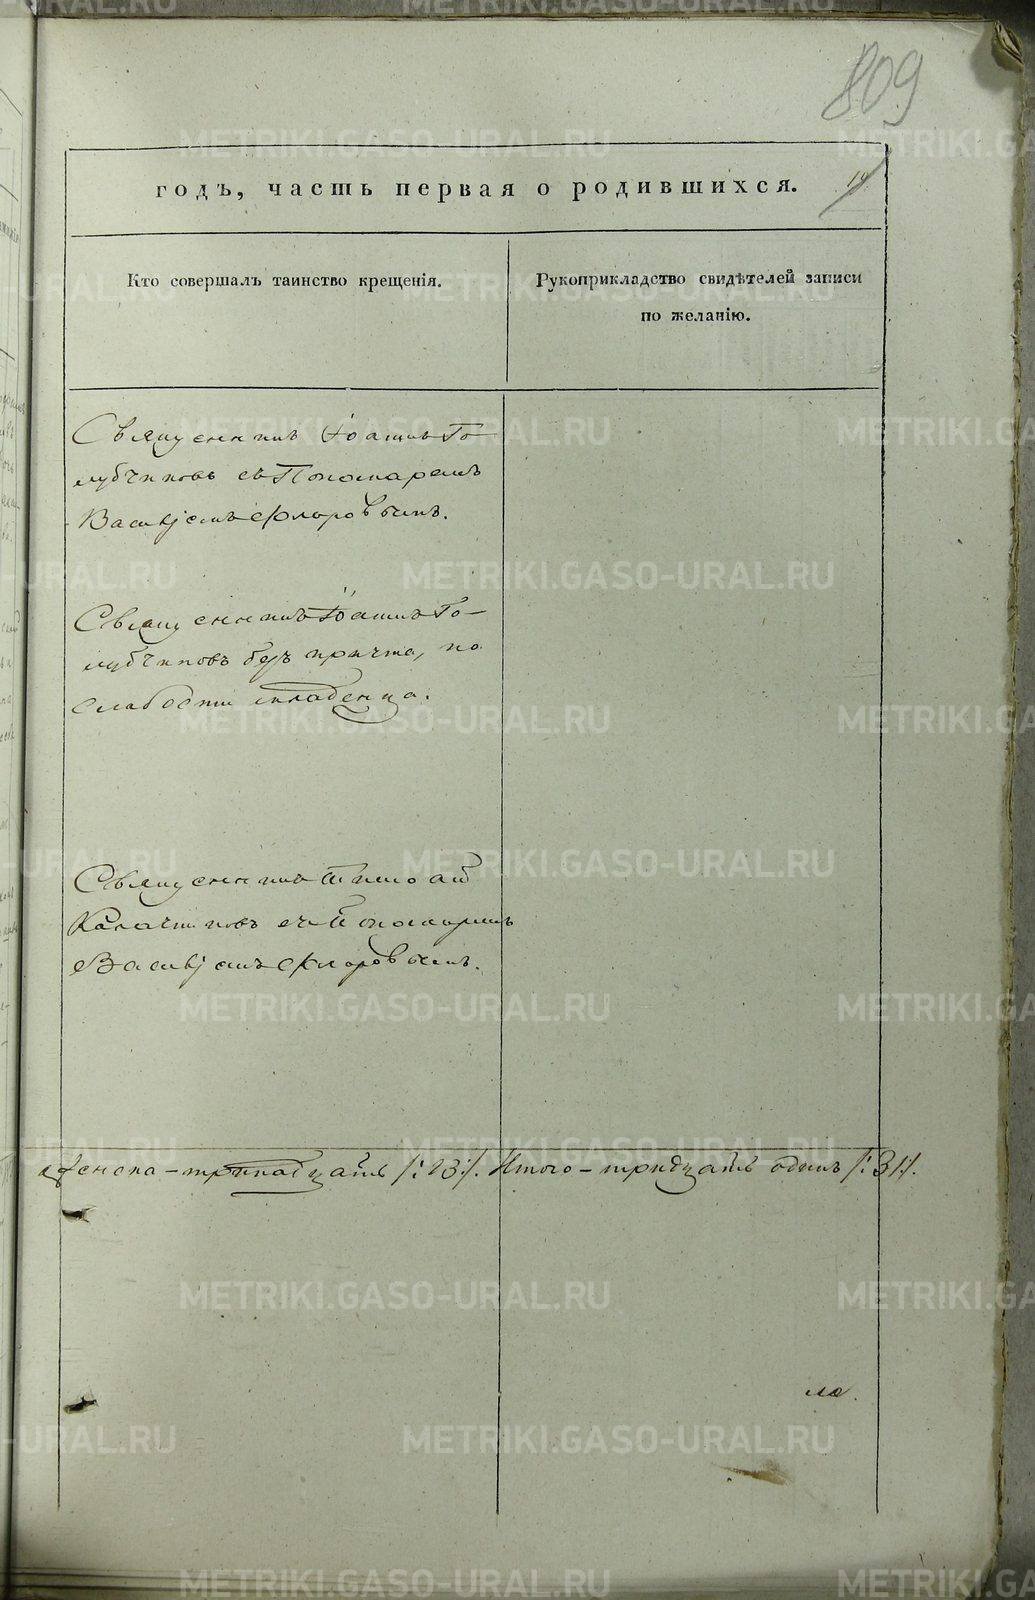 809
годъ, часть первая о родившихся.
Кто совершалъ таинство крещенія.
Рукоприкладство свидѣтелей записи
по желанію.
Священникъ Іоаннъ Го-
лубчиковъ съ Пономаремъ
Василіемъ Флоровымъ.
Священникъ Іоаннъ Го-
лубчиковъ безъ причта, по
слабости младенца.
Священникъ Тимоѳей
Калачниковъ съ Пономаремъ
Василіемъ Флоровымъ.
женска – тринадцать /:13:/. Итого – тридцать одинъ /:31:/.
METRIKI.GASO-URAL.RU